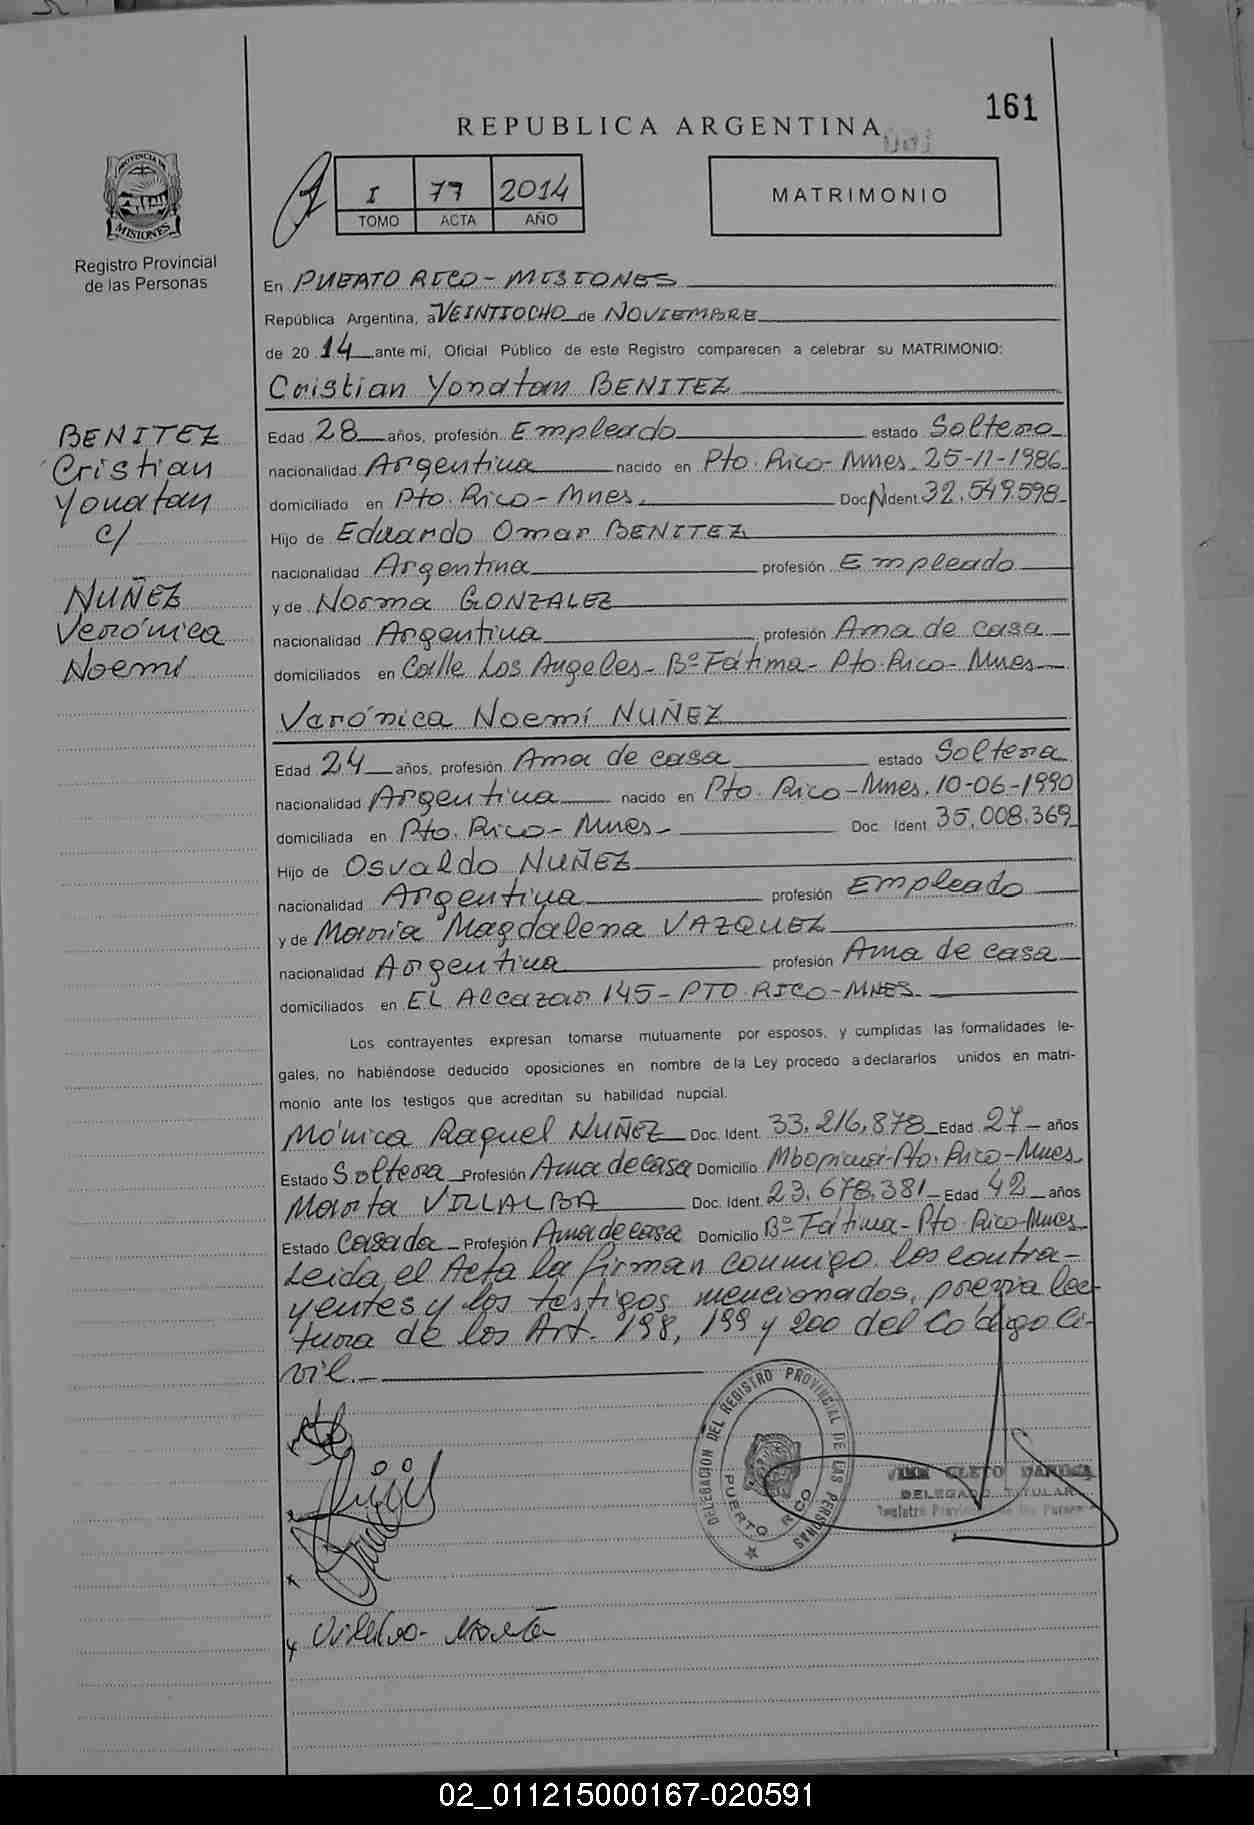 161
REPUBLICA ARGENTINA
I 77 2014
TOMO ACTA AÑO
MATRIMONIO
PROVINCIA DE
MISIONES
Registro Provincial
de las Personas
En PUERTO RICO - MISIONES
República Argentina, a VEINTIOCHO de NOVIEMBRE
de 20 14 ante mí, Oficial Público de este Registro comparecen a celebrar su MATRIMONIO:
Cristian Yonatan BENITEZ
BENITEZ
Cristian
Yonatan
c/
NUÑEZ
Verónica
Noemí
Edad 28 años, profesión Empleado estado Soltero
nacionalidad Argentina nacido en Pto. Rico - Mnes. 25-11-1986
domiciliado en Pto. Rico - Mnes. Doc. N Ident. 32.549.598
Hijo de Eduardo Omar BENITEZ
nacionalidad Argentina profesión Empleado
y de Norma GONZALEZ
nacionalidad Argentina profesión Ama de casa
domiciliados en Calle Los Angeles - Bº Fátima - Pto. Rico - Mnes
Verónica Noemí NUÑEZ
Edad 24 años, profesión Ama de casa estado Soltera
nacionalidad Argentina nacido en Pto. Rico - Mnes. 10-06-1990
domiciliada en Pto. Rico - Mnes Doc. Ident. 35.008.369
Hijo de Osvaldo NUÑEZ
nacionalidad Argentina profesión Empleado
y de Maria Magdalena VAZQUEZ
nacionalidad Argentina profesión Ama de casa
domiciliados en EL Alcazar 145 - PTO. RICO - MNES.
Los contrayentes expresan tomarse mutuamente por esposos, y cumplidas las formalidades le-
gales, no habiéndose deducido oposiciones en nombre de la Ley procedo a declararlos unidos en matri-
monio ante los testigos que acreditan su habilidad nupcial.
Mónica Raquel NUÑEZ Doc. Ident. 33.216.878 Edad 27 años
Estado Soltera Profesión Ama de casa Domicilio Mbopicuá - Pto. Rico - Mnes
Marta VILLALBA Doc. Ident. 23.678.381 Edad 42 años
Estado Casada Profesión Ama de casa Domicilio Bº Fátima - Pto. Rico - Mnes
Leida el Acta la firman conmigo los contra-
yentes y los testigos mencionados, previa lec-
tura de los Art. 198, 199 y 200 del Código Ci-
vil.
DELEGACION DEL REGISTRO PROVINCIAL DE LAS PERSONAS
PUERTO RICO
CLETO
DELEGADO TITULAR
Registro Provincial de las Personas
Villalba - Marta
02_011215000167-020591